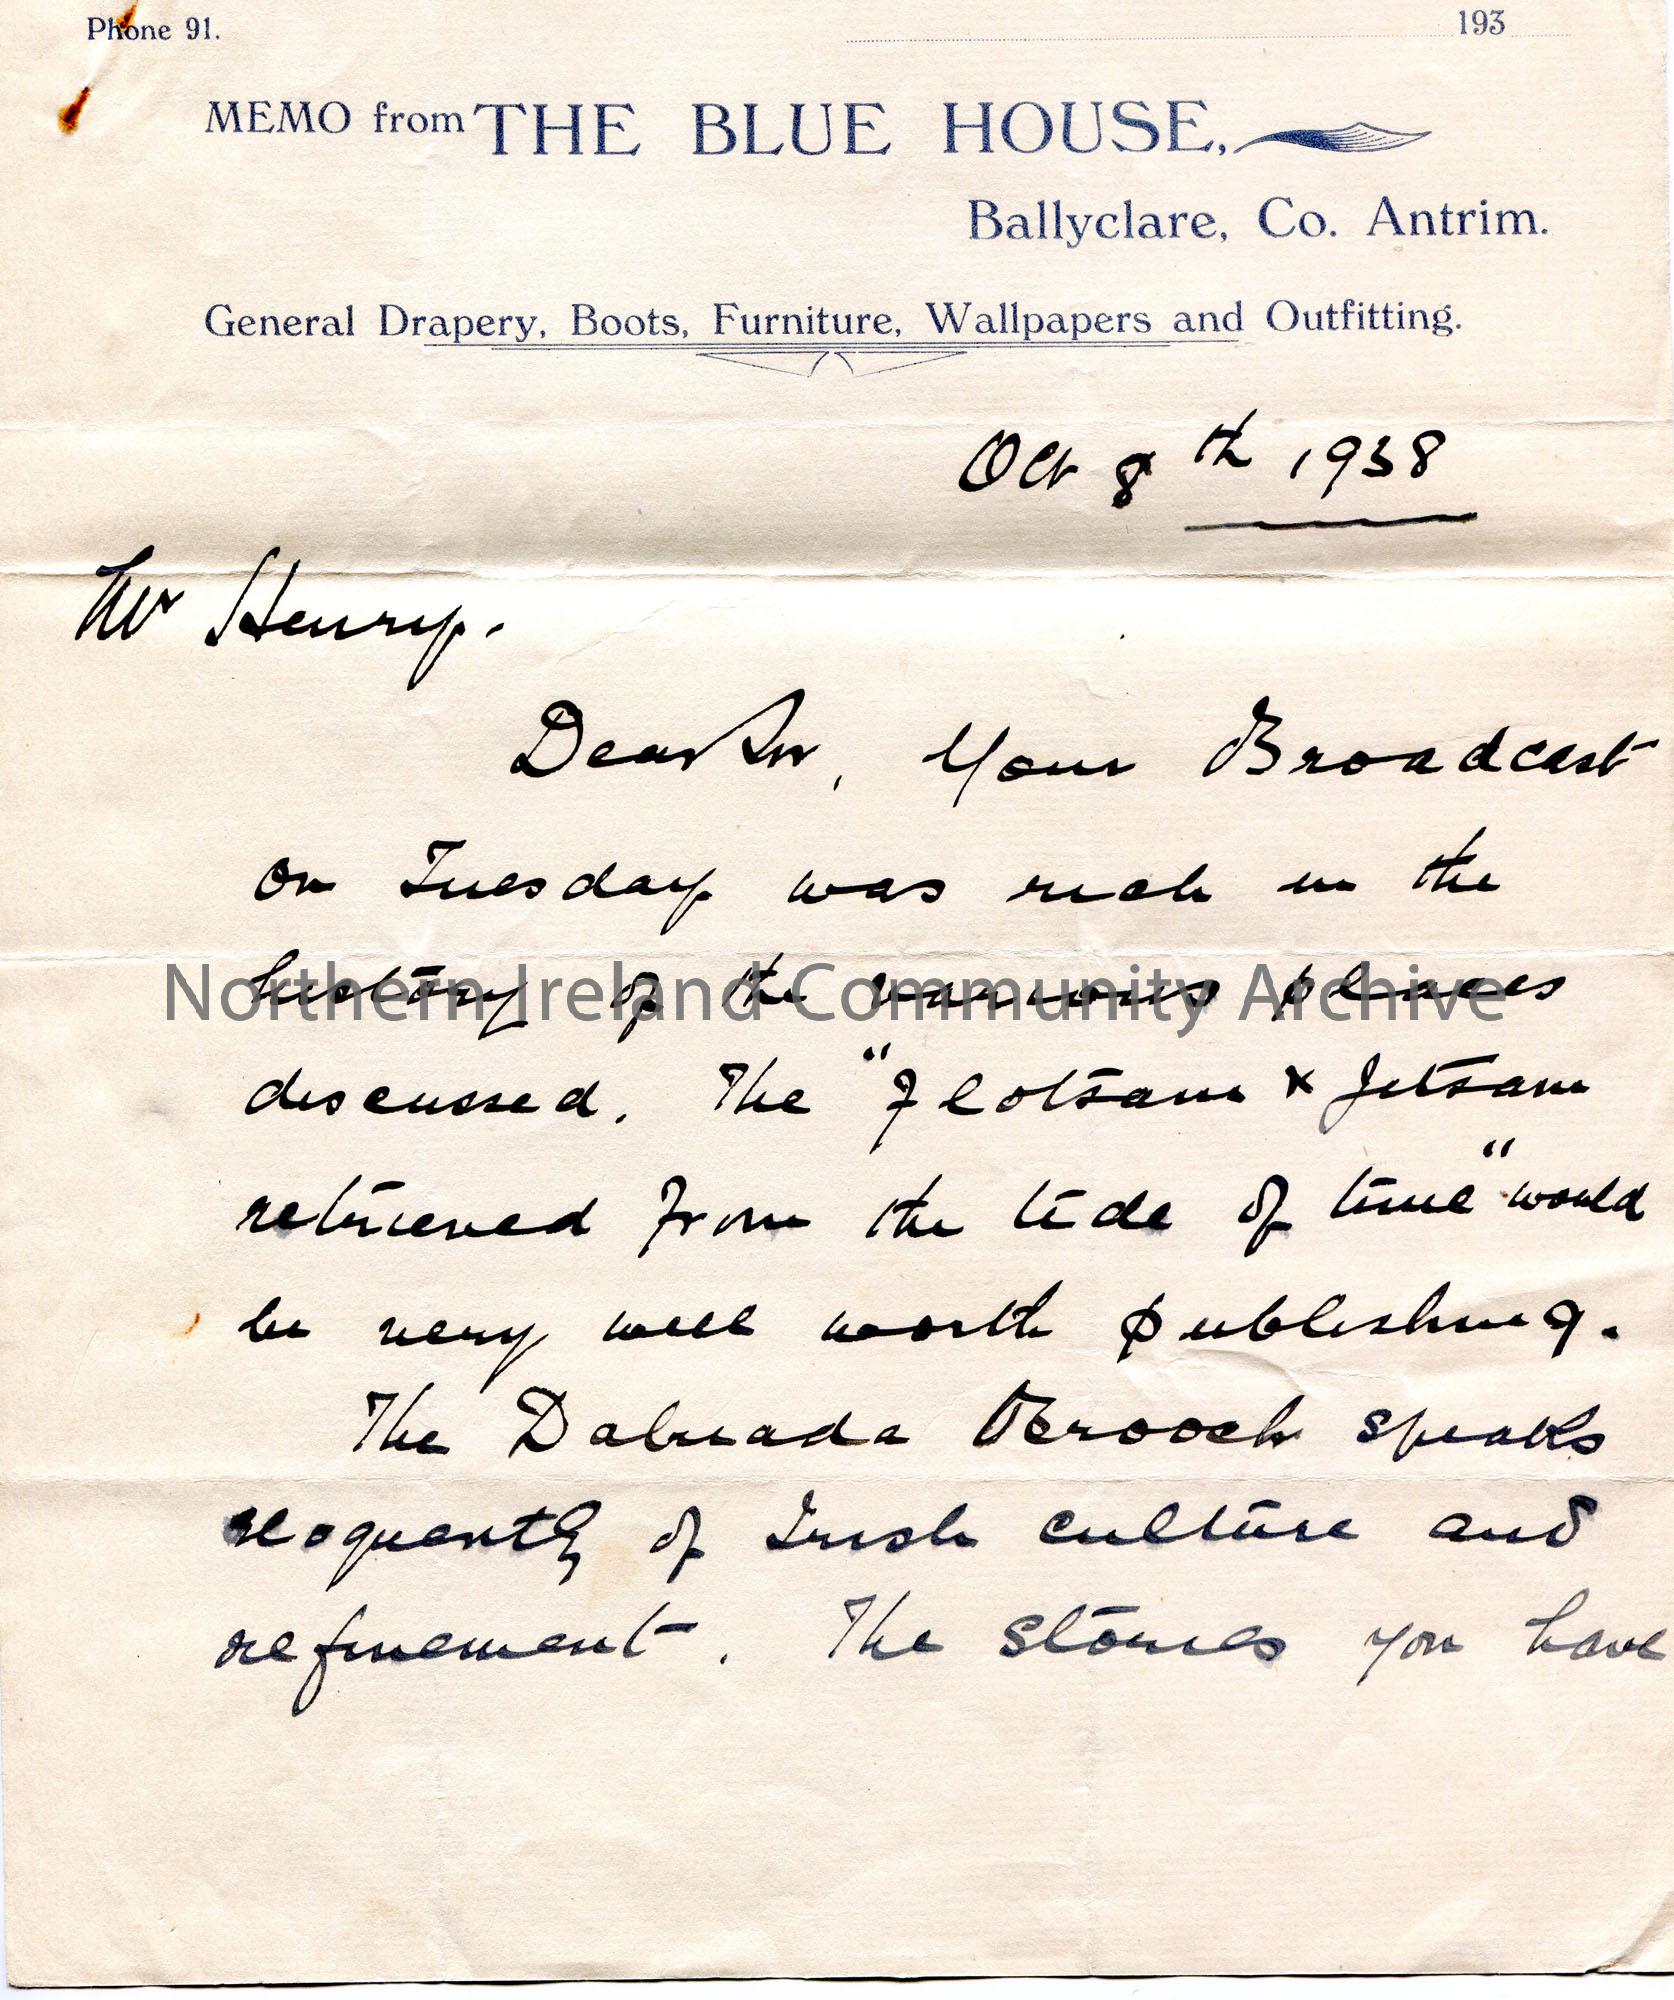 Phone 91.
193
MEMO from THE BLUE HOUSE,
Ballyclare, Co. Antrim.
General Drapery, Boots, Furniture, Wallpapers and Outfitting.
Oct 8th 1938
Mr Henry.
Dear Sir, Your Broadcast
on Tuesday was rich in the
history of the various places
Northern Ireland Community Archive
discussed. The "Flotsam & Jetsam
retrieved from the tide of time" would
be very well worth publishing.
The Dalriada Brooch speaks
eloquently of Irish culture and
refinement. The stories you have